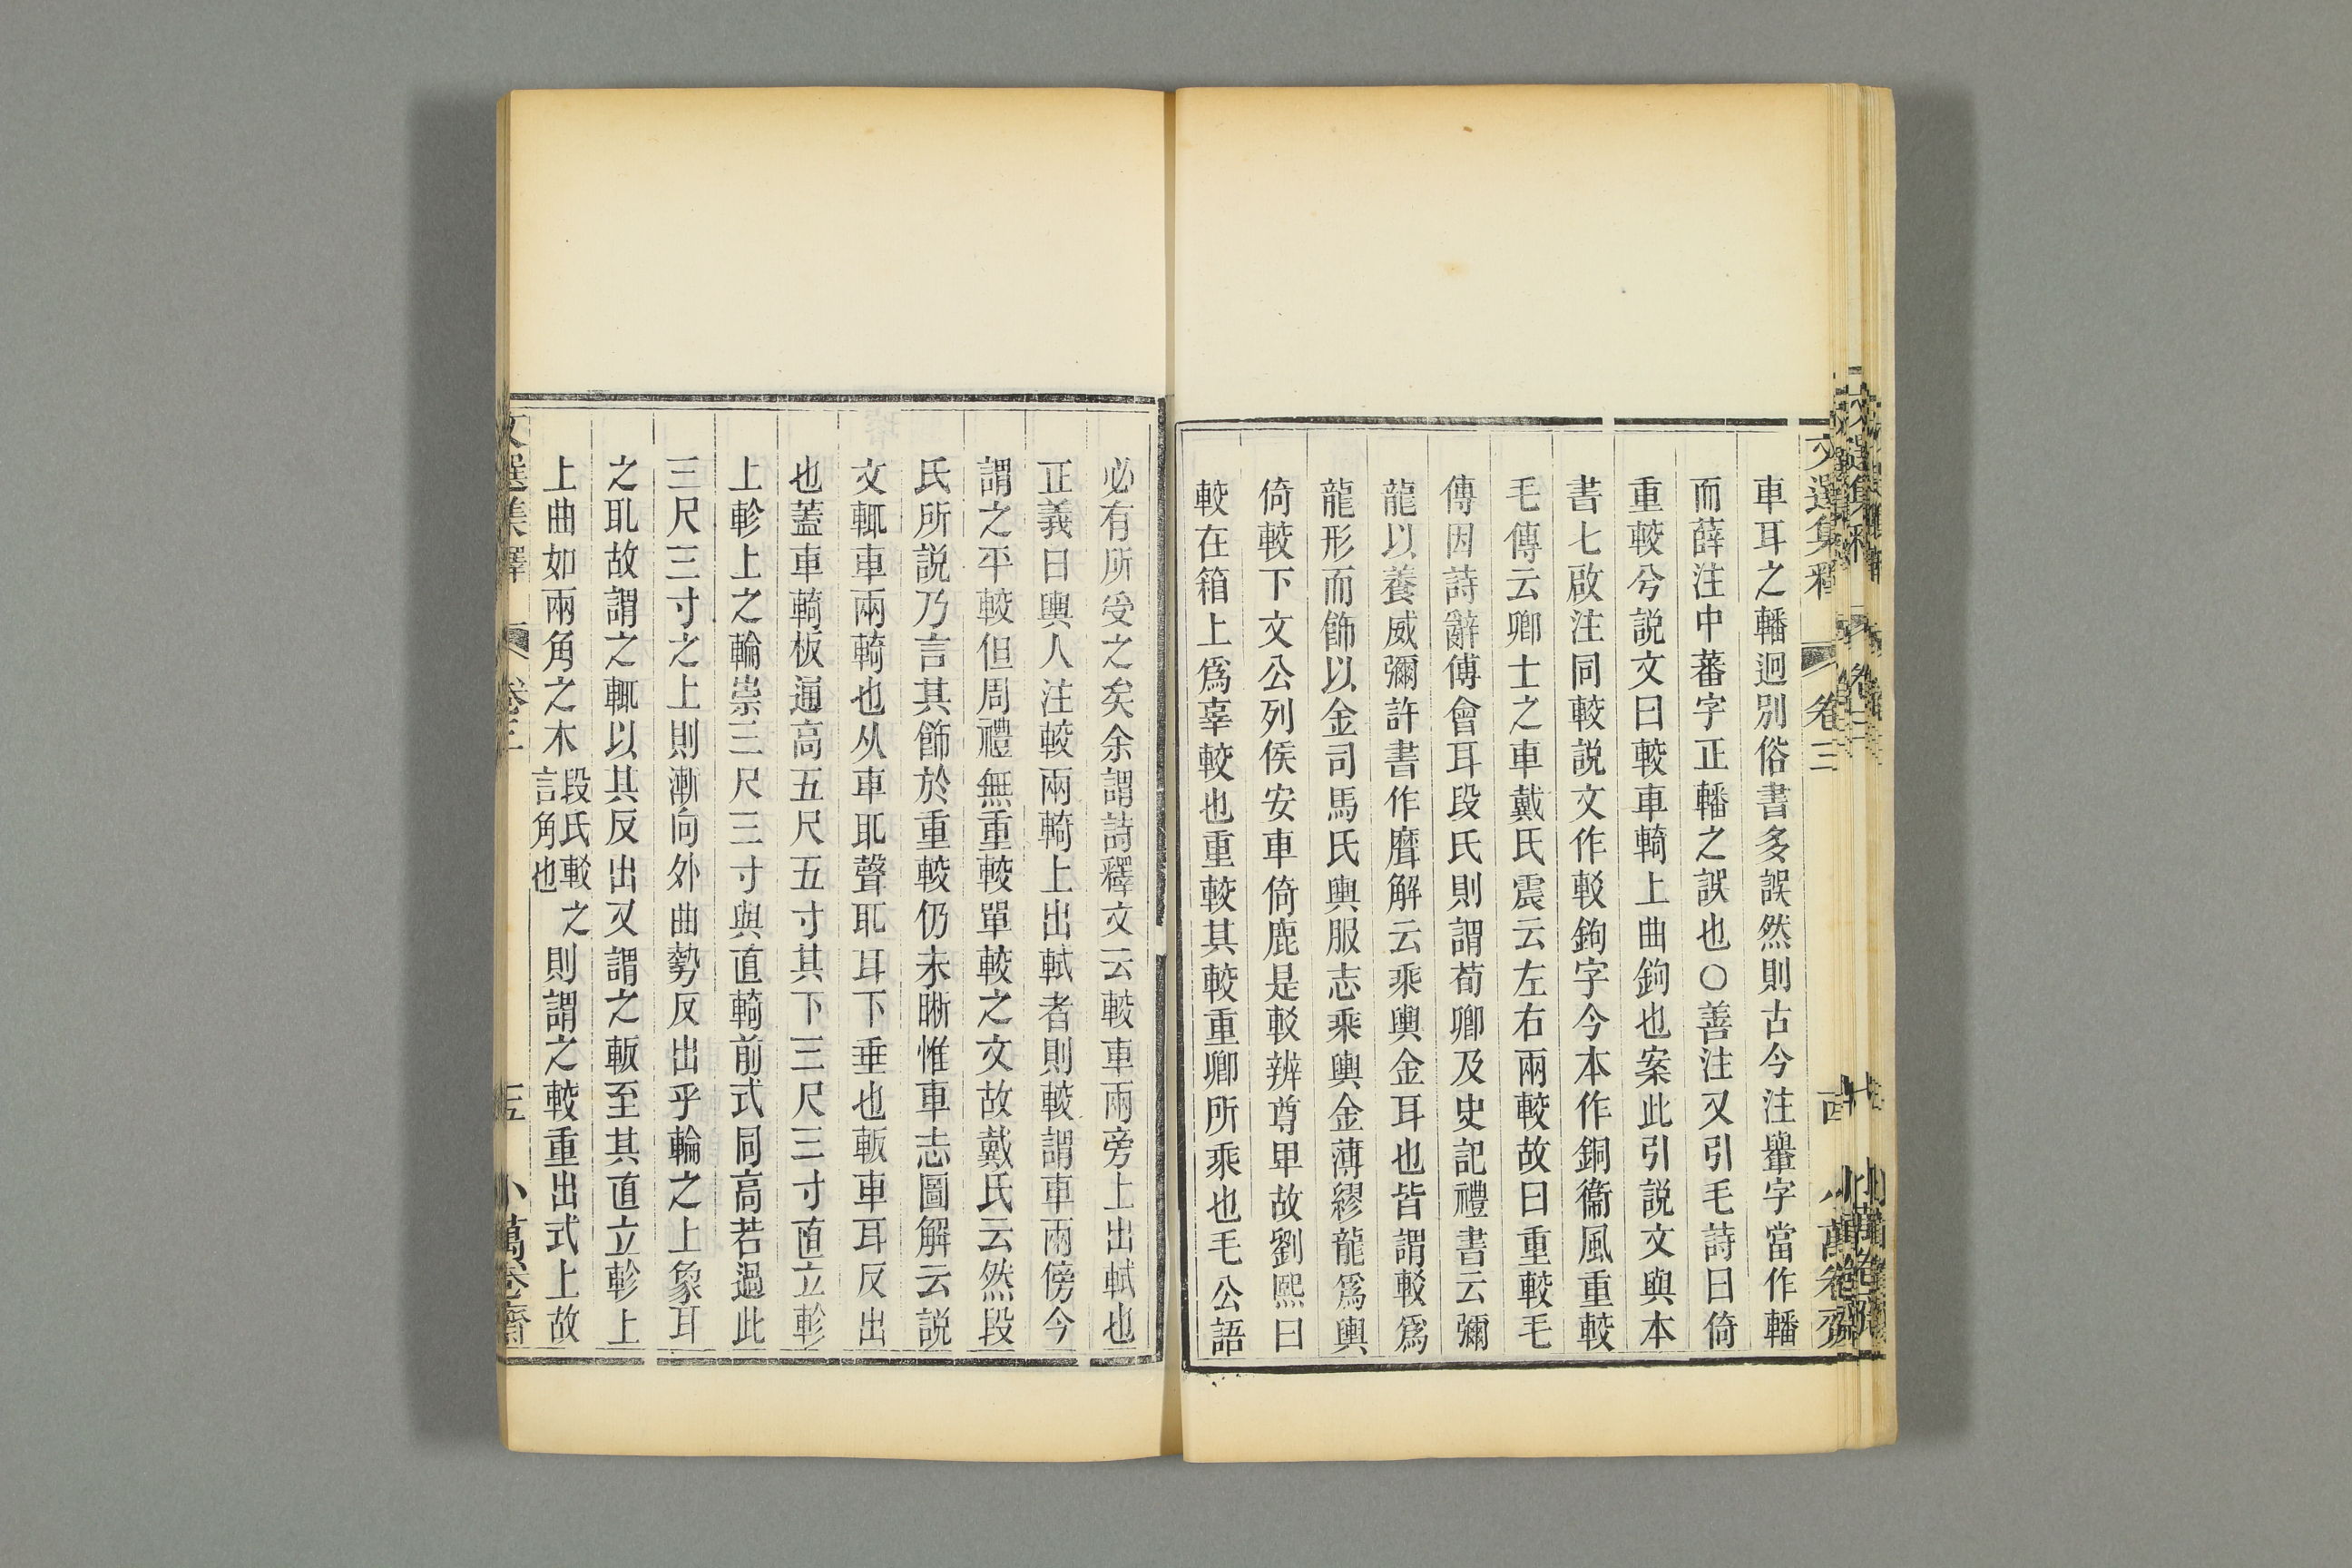 車耳之轓迥別俗書多誤然則古今注轝字當作轓
而薛注中蕃字正轓之誤也○善注又引毛詩曰倚
重較兮説文曰較車輢上曲鉤也案此引説文與本
書七啟注同較説文作䡈鉤字今本作銅衞風重較
毛傳云卿士之車戴氏震云左右兩較故曰重較毛
傳因詩辭傅會耳段氏則謂荀卿及史記禮書云彌
龍以養威彌許書作䃺解云乘輿金耳也皆謂䡈爲
龍形而飾以金司馬氏輿服志乘輿金薄繆龍爲輿
倚較下文公列侯安車倚鹿是䡈辨尊卑故劉熙曰
較在箱上爲辜較也重較其較重卿所乘也毛公語
必有所受之矣余謂詩釋文云較車兩旁上出軾也
正義曰輿人注較兩輢上出軾者則較謂車兩傍今
謂之平較但周禮無重較單較之文故戴氏云然段
氏所説乃言其飾於重較仍未晰惟車志圖解云説
文輒車兩輢也从車耴聲耴耳下垂也軓車耳反出
也蓋車輢板通高五尺五寸其下三尺三寸直立軫
上軫上之輪崇三尺三寸與直輢前式同高若過此
三尺三寸之上則漸向外曲勢反出乎輪之上象耳
之耴故謂之輒以其反出又謂之軓至其直立軫上
上曲如兩角之木段氏䡈之言角也則謂之較重出式上故
文選集釋 卷三 小萬卷齋